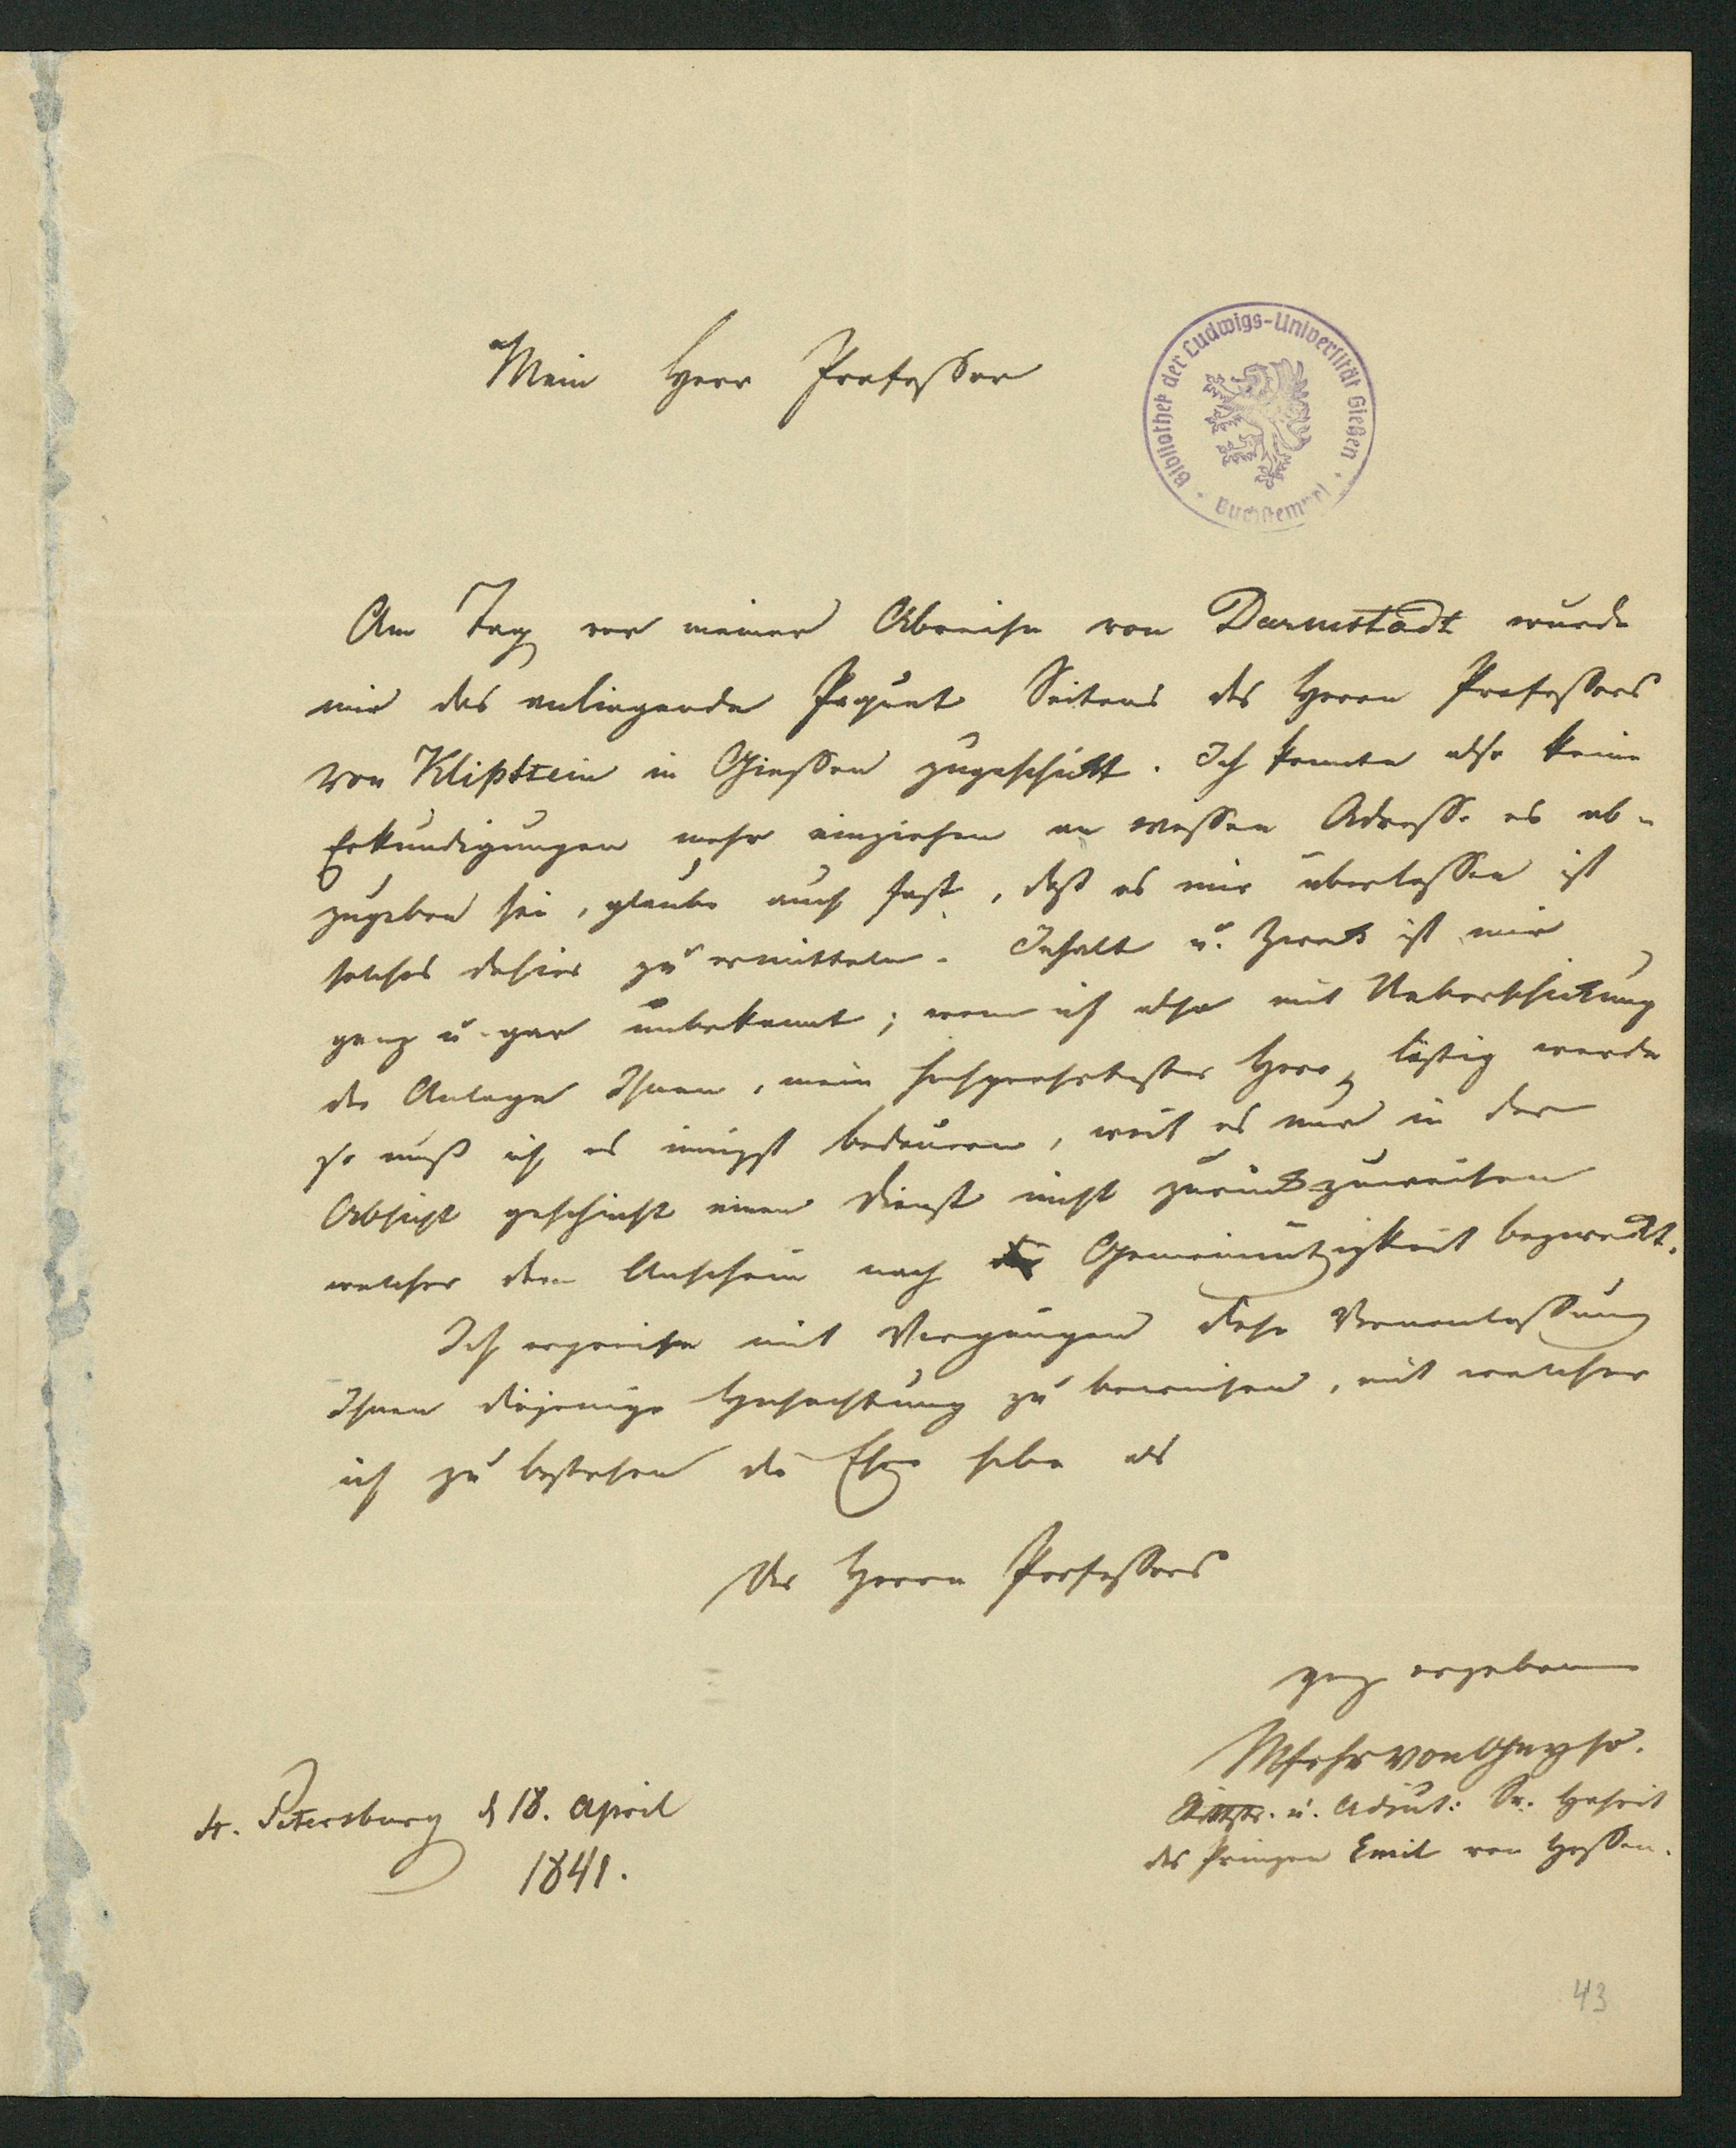 Mein Herr Professor
Bibliothek der Ludwigs-Universität Gießen
Buchstempel
Am Tag vor meiner Abreise von Darmstadt wurde
mir das anliegende Paquet Seitens des Herrn Professors
von Klipstein in Giessen zugeschickt. Ich konnte also keine
Erkundigungen mehr einziehen an wessen Adresse es ab-
zugeben sei, glaube auch fast, daß es mir überlassen ist
solches dahier zu ermitteln. Inhalt u. Zweck ist mir
ganz u. gar unbekannt; wenn ich also mit Ueberschickung
der Anlage Ihnen, mein hochgeehrtester Herr, lästig werde
so muß ich es innigst bedauern, weil es nur in der
Absicht geschieht einen Dienst nicht zurückzuweisen
welcher dem Anschein nach Gemeinnützigkeit bezweckt.
Ich ergreife mit Vergnügen diese Veranlassung
Ihnen diejenige Hochachtung zu beweisen, mit welcher
ich zu bestehen die Ehre habe als
Des Herrn Professors
ganz ergebener
von Geyso.
Rittstr. u. Adjut: Sr. Hoheit
des Prinzen Emil von Hessen.
St. Petersburg d 18. April
1841.
43